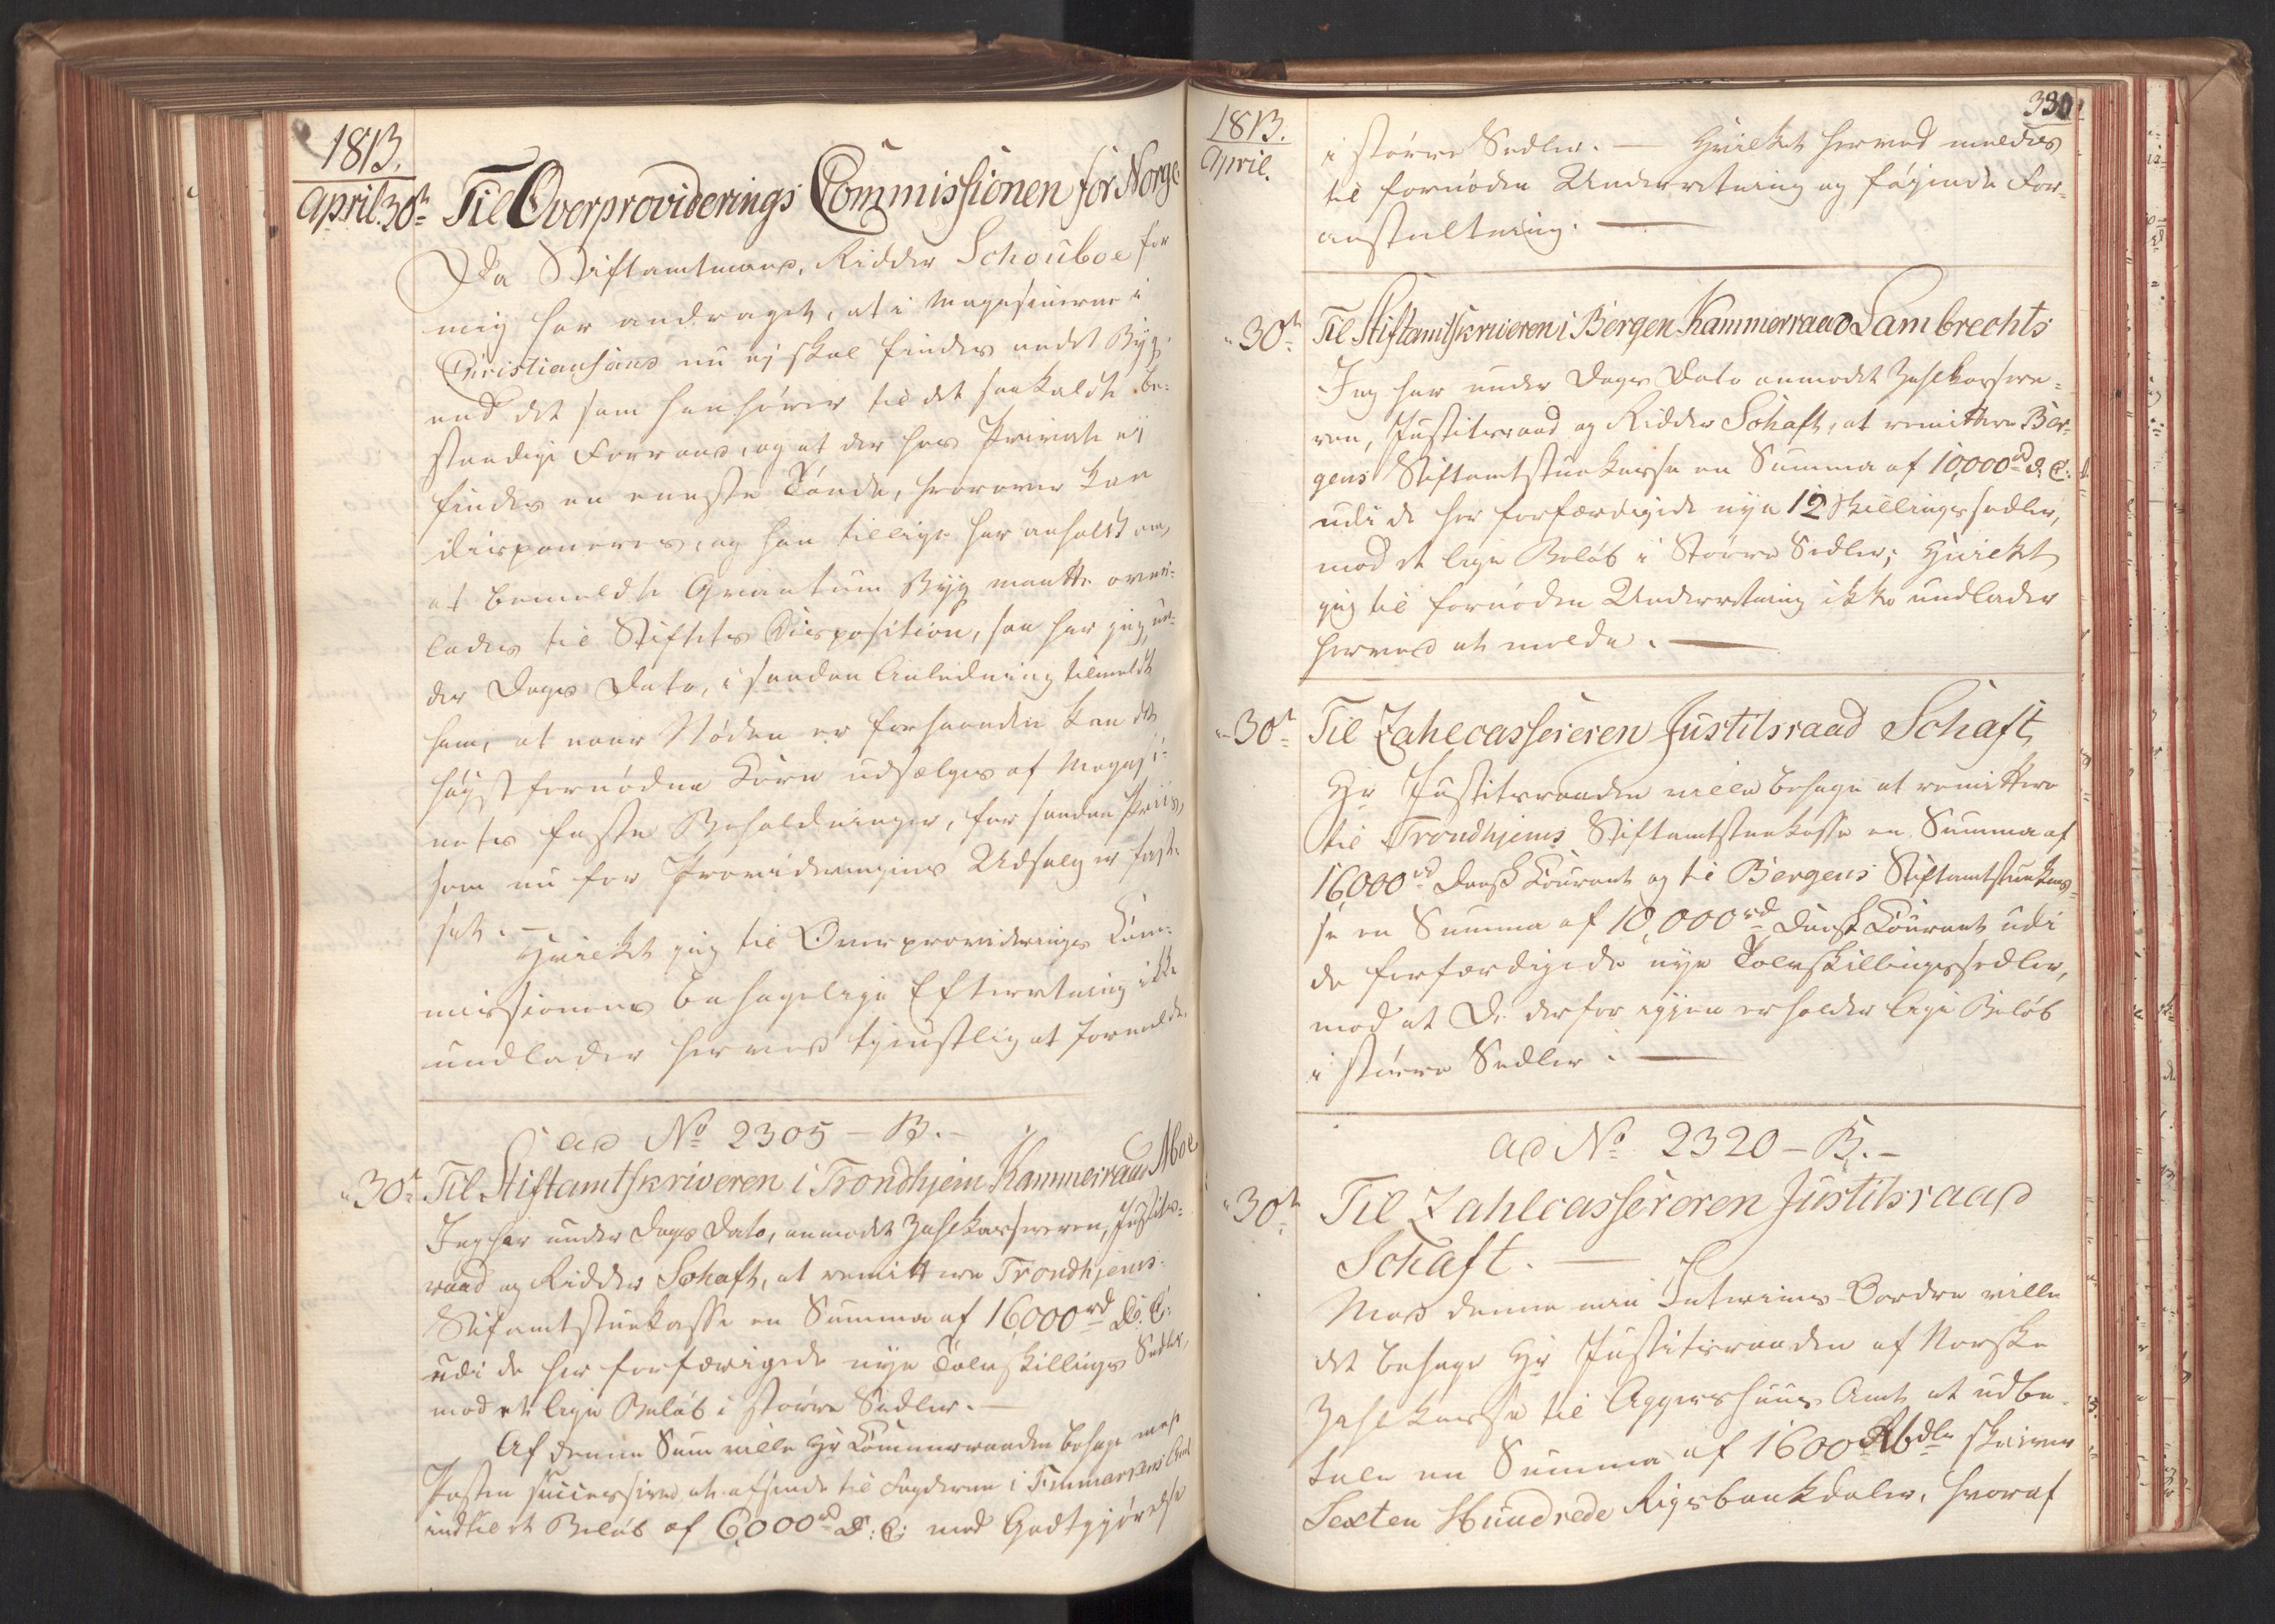 1813.
April 30te Til Overproviderings Commissionen for Norge
Da Stiftamtmand, Ridder Schouboe for
mig har andraget, at i Magasinerne i
Christiansand nu ej skal findes andet Byg,
end det som henhörer til det saakaldte be-
standige Forraad, og at der hos Private ej
findes en eneste Tönde, hvorover kan
disponeres, og han tillige har anholdt om,
at bemeldte Qvantum Byg maatte over-
lades til Stiftets Disposition, saa har jeg un-
der Dags Dato, i saadan Anledning tilmeldt
ham, at naar Nöden er forhaanden kan det
högstfornödne Korn udsælges af Magazi-
nets faste Beholdninger, for saadan Priis,
som nu for Provideringens Udsalg er fast-
sat. —
Hvilket jeg til Overproviderings Com-
missionens behagelige Efterretning ikke
undlader herved tjenstlig at formelde.
ad No 2305 - B. -
" 30te Til Stiftamtskriveren i Trondhjem Kammerraad Moe
Jeg har under Dags Dato, anmodet Zahlkasserern, Justits-
raad og Ridder Schaft, at remittere Trondhjems
Stifamtstuekasse en Summa af 16000rd D: C:
udi de her forfærdigede nye Tolvskillings Sedler,
mod et lige Belöb i större Sedler. —
Af denne Sum ville Hr Kammerraaden behage med
Posten successive at afsende til Fogderne i Finmarkens Amt
indtil et Belöb af 6000rd D: C: mod Godtgjörelse
1813.
April.
330
i större Sedler. — Hvilket herved meldes
til fornöden Underretning og föjende For-
anstaltning. —
" 30te Til Stiftamtskriveren i Bergen Kammerraad Lambrechts
Jeg har under Dags Dato anmodet Zahlkassere-
ren, Justitsraad og Ridder Schaft, at remittere Ber-
gens Stiftamtstuekasse en Summa af 10,000rd D. C:
udi de her forfærdigede nye 12 Skillingssedler,
mod et lige Belöb i Större Sedler; Hvilket
jeg til fornöden Underretning ikke undlader
herved at melde. —
" 30te Til Zahlcassereren Justitsraad Schaft,
Hr Justitsraaden ville behage at remittere
til Trondhjems Stiftamtstuekasse en Summa af
16000rd Dansk Courant og til Bergens Stiftamtstuekas-
se en Summa af 10,000rd Dansk Courant udi
de forfærdigede nye Tolvskillingssedler,
mod at De derfor igjen erholder lige Belöb
i större Sedler. —
ad No 2320 - B. -
" 30te Til Zahlcassereren Justitsraad
Schaft. —
Mod denne min Interims-Ordre ville
det behage Hr Justitsraaden af Norske
Zahlkasse til Aggershuus Amt at udbe-
tale en Summa af 1600 Rbdlr skriver
Sexten Hundrede Rigsbankdaler, hvoraf